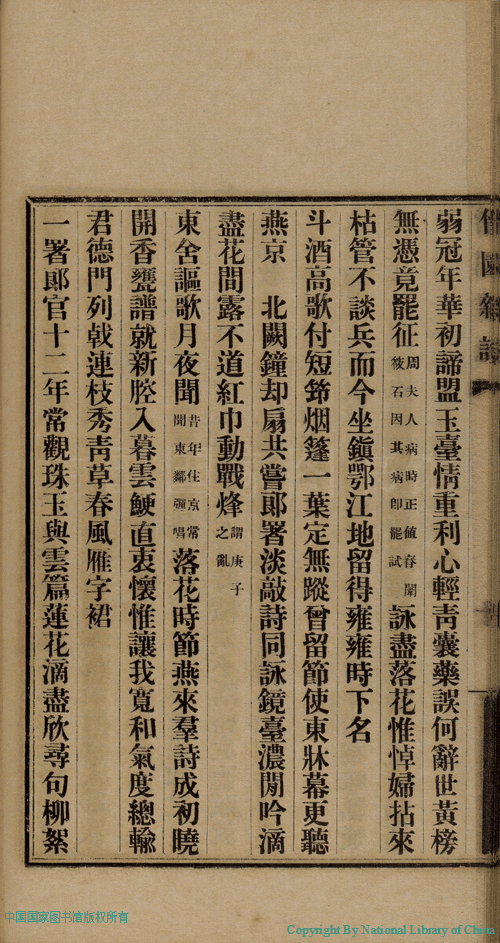 弱冠年華初諦盟玉臺情重利心輕青囊藥誤何辭世黃榜
無憑竟罷征周夫人病時正値春闈筱石因其病卽罷試詠盡落花惟悼婦拈來
枯管不談兵而今坐鎭鄂江地留得雍雍時下名
斗酒高歌付短箏烟篷一葉定無蹤曾留節使東牀幕更聽
燕京北闕鐘却扇共嘗郞署淡敲詩同詠鏡臺濃閒吟滴
盡花間露不道紅巾動戰烽謂庚子之亂
東舍謳歌月夜聞昔年住京常聞東鄰彈唱落花時節燕來羣詩成初曉
開香甕譜就新腔入暮雲鯁直衷懷惟讓我寬和氣度總輸
君德門列戟連枝秀靑草春風雁字裙
一署郞官十二年常觀珠玉與雲篇蓮花滴盡欣尋句柳絮
中国国家图书馆版权所有
Copyright By National Library of China